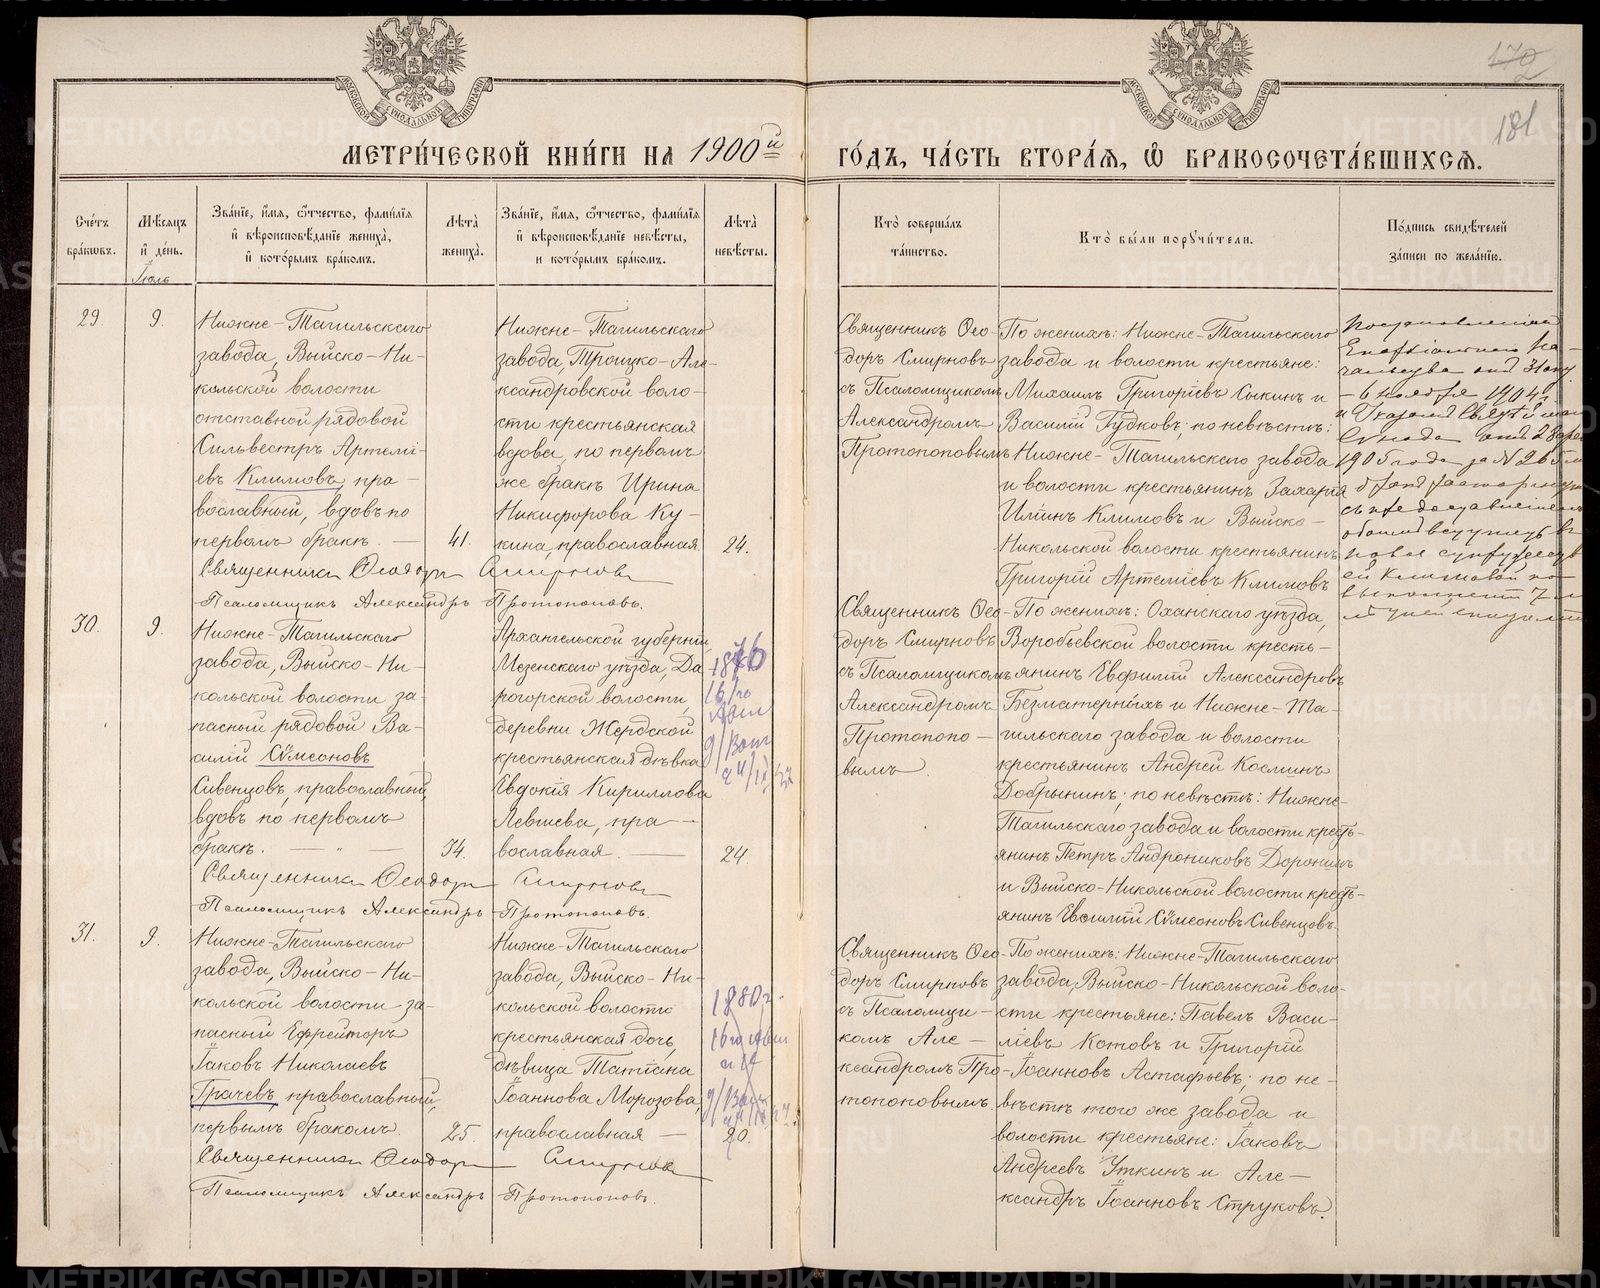 МЕТРИ́ЧЕСКОЙ КНИ́ГИ НА 1900й
ГО́ДЪ, ЧА́СТЬ ВТОРА́Ѧ, Ѽ БРАКОСОЧЕТА́ВШИХСѦ.
170
181
Сче́тъ бра́кѡвъ.
Мѣ́сѧцъ и҆ де́нь.
Зва́нїе, и҆́мѧ, ѻ҆́тчество, фами́лїѧ и҆ вѣроисповѣ́данїе жениха̀, и҆ кото́рымъ бра́комъ.
Лѣ́та̀ жениха̀.
Зва́нїе, и҆́мѧ, ѻ҆́тчество, фами́лїѧ и҆ вѣроисповѣ́данїе невѣ́сты, и кото́рымъ бра́комъ.
Лѣ́та̀ невѣ́сты.
Кто̀ соверша́лъ та́инство.
Кто̀ бы́ли порꙋчи́тели.
По́дпись свидѣ́телей за́писи по жела́нїю.
Іюль
29.
9.
Нижне-Тагильскаго
завода, Выйско-Ни-
кольской волости
отставной рядовой
Сильвестръ Артемі-
евъ Климовъ, пра-
вославный, вдовъ по
первомъ бракѣ. —
41.
Нижне-Тагильскаго
завода, Троицко-Але-
ксандровской воло-
сти крестьянская
вдова, по первомъ
же бракѣ Ирина
Никифорова Ку-
кина, православная.
24.
Священникъ Ѳеодоръ Смирновъ
Псаломщикъ Александръ Протопоповъ.
Священникъ Ѳео-
доръ Смирновъ
съ Псаломщикомъ
Александромъ
Протопоповымъ
По женихѣ: Нижне-Тагильскаго
завода и волости крестьяне:
Михаилъ Григоріевъ Сыкинъ и
Василій Гудковъ; по невѣстѣ:
Нижне-Тагильскаго завода
и волости крестьянинъ Захарія
Илиинъ Климовъ и Выйско-
Никольской волости крестьянинъ
Григорій Артеміевъ Климовъ
Постановленіемъ
- 6 ноября 1904 г.
1905 года за № 265
30.
9.
Нижне-Тагильскаго
завода, Выйско-Ни-
кольской волости за-
пасный рядовой Ва-
силій Сѵмеоновъ
Сивенцовъ, православный,
вдовъ по первомъ
бракѣ. — „ —
34.
Архангельской губерніи,
Мезенскаго уѣзда, До
рогорской волости,
деревни Жердской
крестьянская дѣвка
Евдокія Кириллова
Левшева, пра-
вославная. —
24.
1876
16/го
Священникъ Ѳеодоръ Смирновъ
Псаломщикъ Александръ Протопоповъ.
Священникъ Ѳео-
доръ Смирновъ
съ Псаломщикомъ
Александромъ
Протопопо-
вымъ.
По женихѣ: Оханскаго уѣзда,
Воробьевской волости кресть-
янинъ Евфилій Александровъ
Безматерныхъ и Нижне-Та-
гильскаго завода и волости
крестьянинъ Андрей Косминъ
Добрынинъ; по невѣстѣ: Нижне-
Тагильскаго завода и волости кресть-
янинъ Петръ Андрониковъ Доронинъ
и Выйско-Никольской волости кресть-
янинъ Сѵмеоновъ Сивенцовъ.
31.
9.
Нижне-Тагильскаго
завода, Выйско-Ни-
кольской волости за-
пасный Ефрейторъ
Іаковъ Николаевъ
Грачевъ, православный,
первымъ бракомъ.
25.
Нижне-Тагильскаго
завода, Выйско-Ни-
кольской волости
крестьянская дочь,
дѣвица Татіана
Іоаннова Морозова,
православная —
20.
1880 г.
Священникъ Ѳеодоръ Смирновъ
Псаломщикъ Александръ Протопоповъ.
Священникъ Ѳео-
доръ Смирновъ
съ Псаломщи-
комъ Але-
ксандромъ Про-
топоповымъ.
По женихѣ: Нижне-Тагильскаго
завода, Выйско-Никольской воло-
сти крестьяне: Павелъ Васи-
ліевъ Котовъ и Григорій
Іоанновъ Астафьевъ; по не-
вѣстѣ того же завода и
волости крестьяне: Іаковъ
Андреевъ Уткинъ и Але-
ксандръ Іоанновъ Струковъ.
METRIKI.GASO-URAL.RU